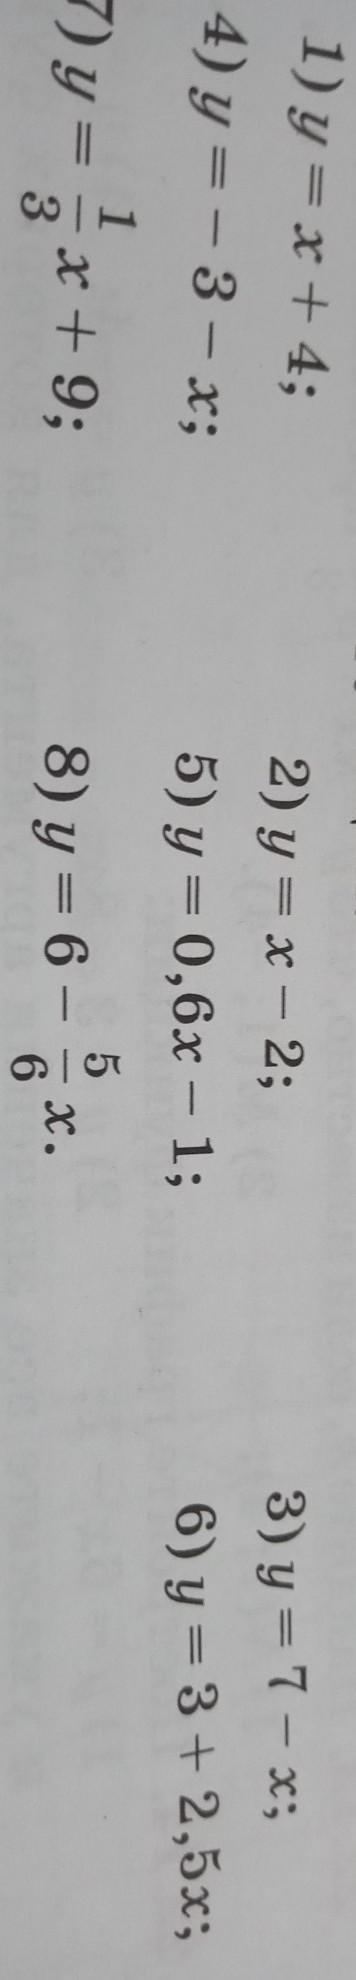 1) y = x + 4; 2) y = x − 2; 3) y = 7 − x;
4) y = − 3 − x; 5) y = 0,6x − 1; 6) y = 3 + 2,5x;
7) y = 1/3 x + 9; 8) y = 6 − 5/6 x.